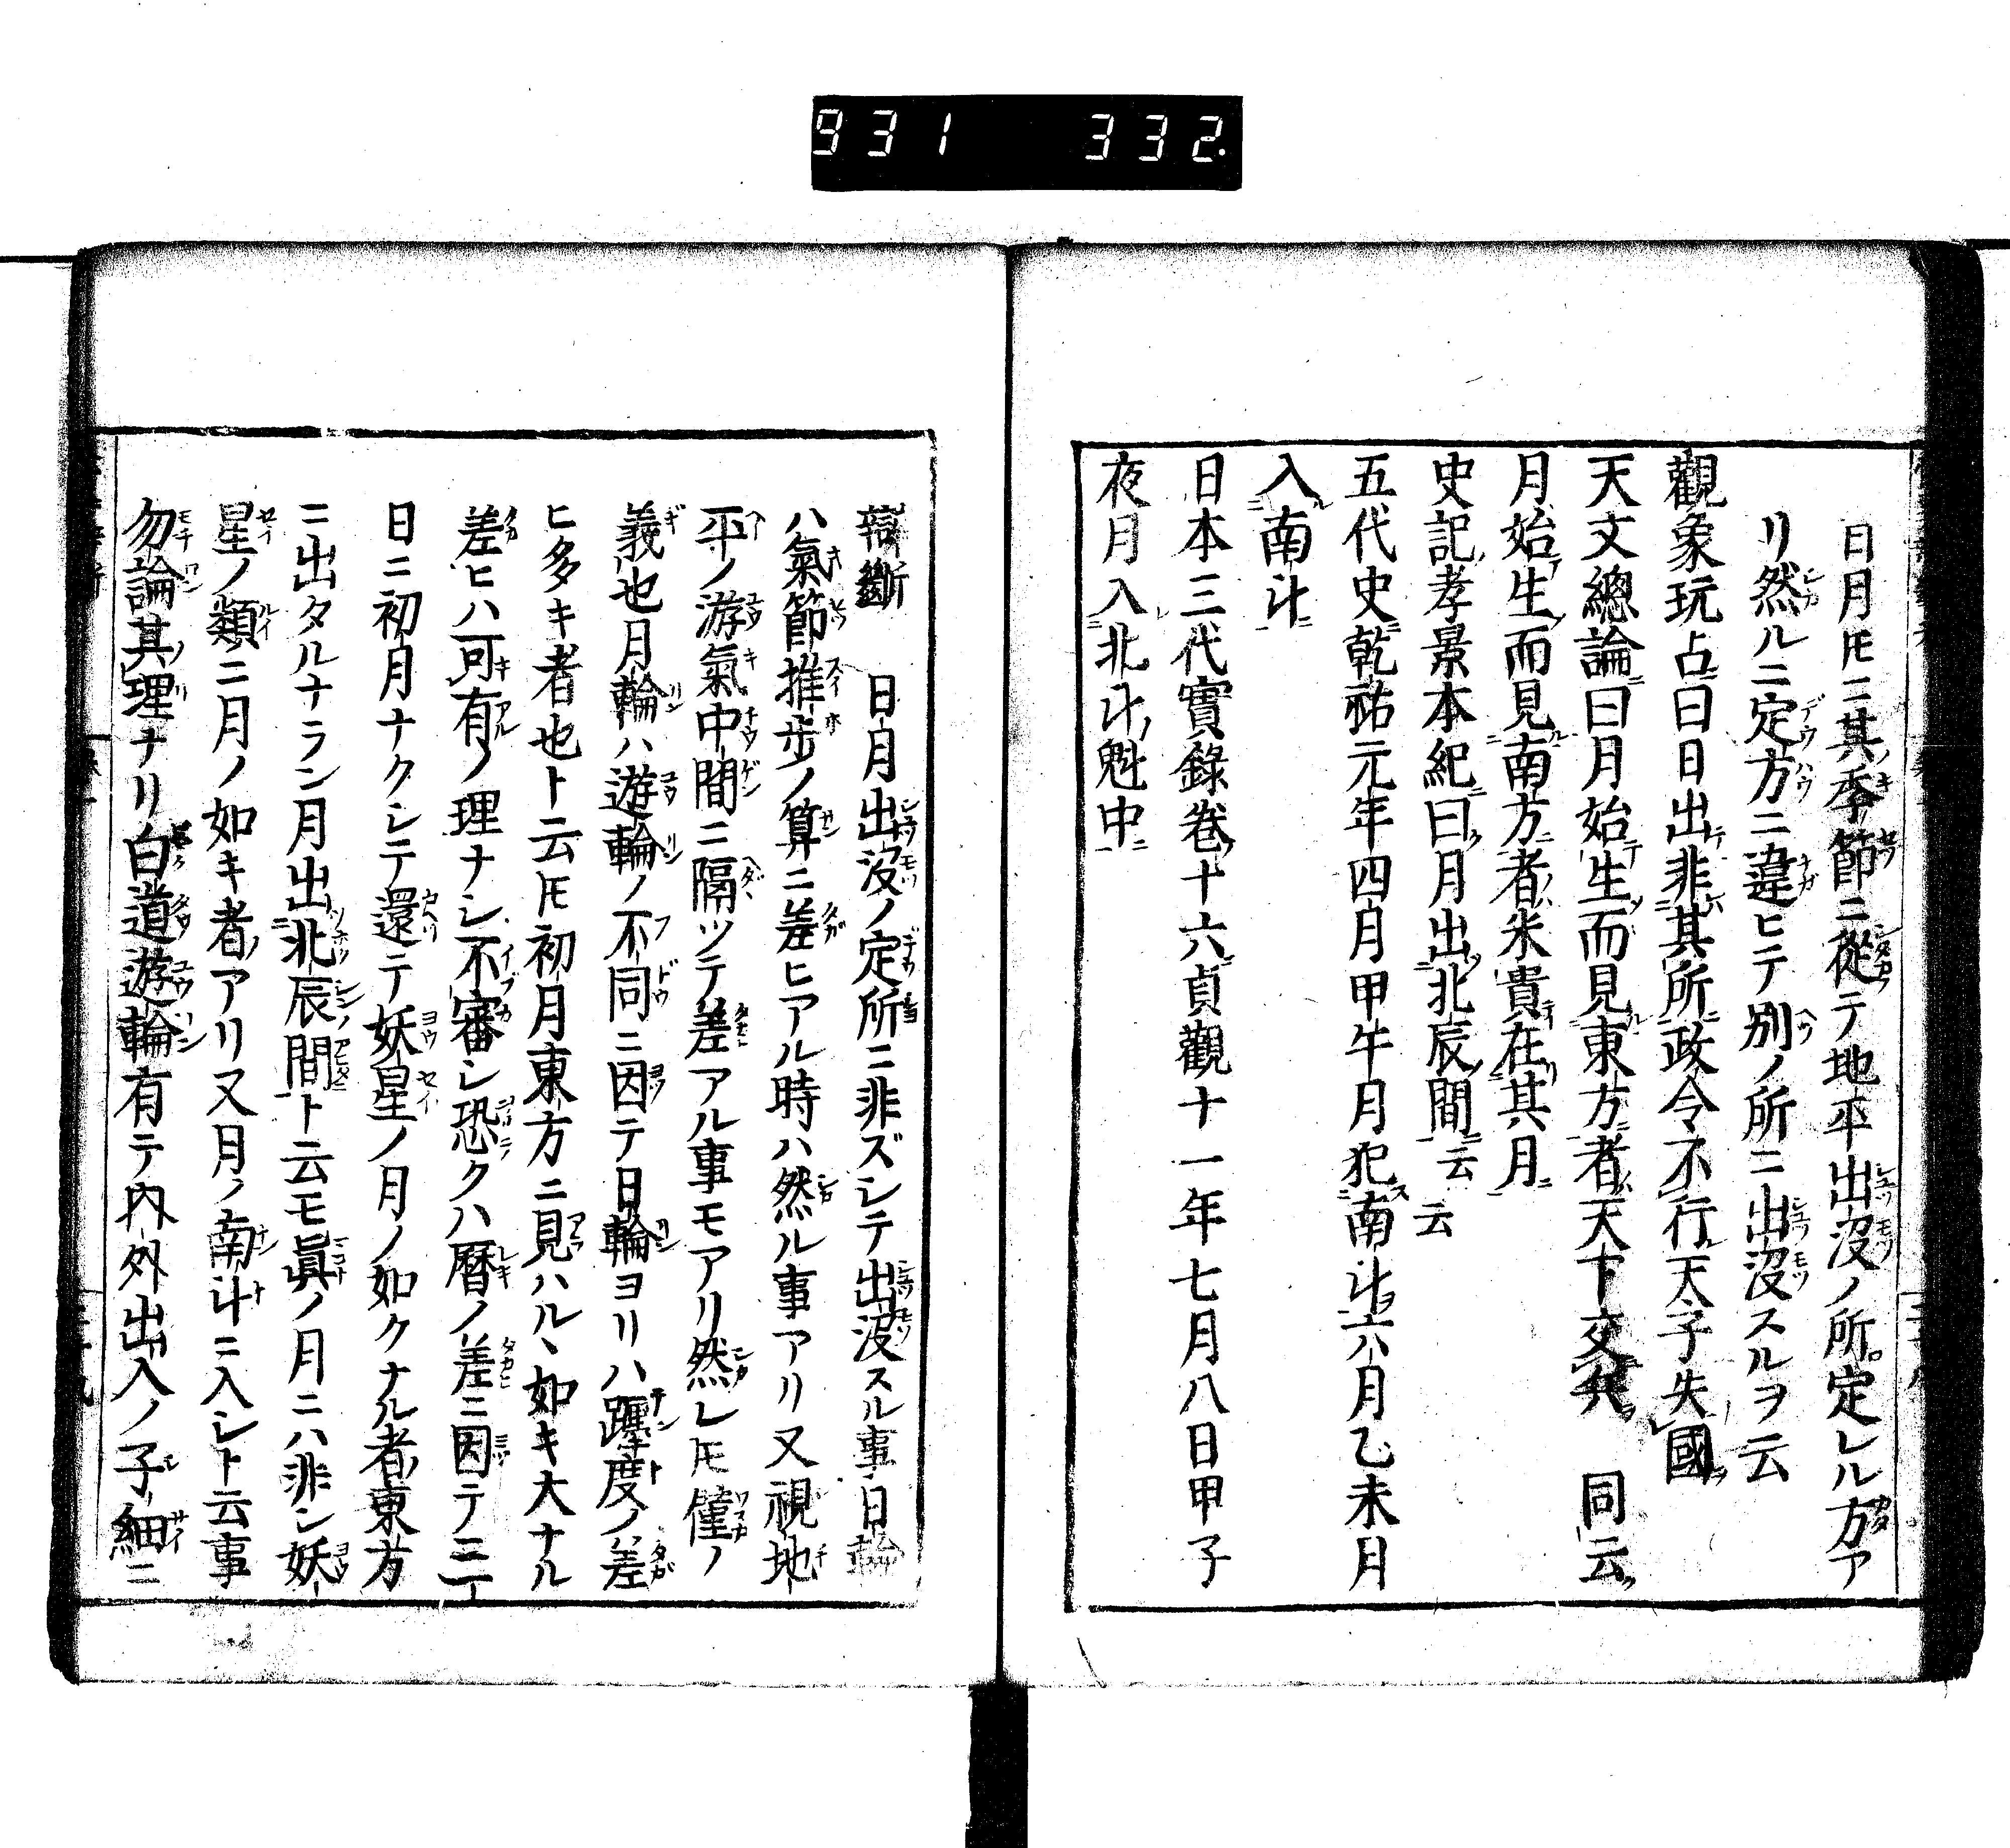 931 332.
日月𪜈ニ其季節ニ從テ地平出沒ノ所定レル方ア
リ然ルニ定方ニ違ヒテ別ノ所ニ出沒スルヲ云
觀象玩占曰日出非其所政令不行天子失國
天文總論曰月始生而見東方者天下交兵 同云
月始生而見南方者米貴在其月
史記孝景本紀曰月出北辰間云云
五代史乾祐元年四月甲午月犯南斗六月乙未月
入南斗
日本三代實錄卷十六貞觀十一年七月八日甲子
夜月入北斗魁中
辯斷 日月出沒ノ定所ニ非ズシテ出沒スル事日輪
ハ氣節推歩ノ算ニ差ヒアル時ハ然ル事アリ又視地
平ノ游氣中間ニ隔ッテ差アル事モアリ然レ𪜈僅ノ
義也月輪ハ遊輪ノ不同ニ因テ日輪ヨリハ躔度ノ差
ヒ多キ者也ト云𪜈初月東方ニ見ハルヽ如キ大ナル
差ヒハ可有ノ理ナシ不審シ恐クハ曆ノ差ニ因テ三
日ニ初月ナクシテ還テ妖星ノ月ノ如クナル者東方
ニ出タルナラン月出北辰間ト云モ眞ノ月ニハ非シ妖
星ノ類ニ月ノ如キ者アリ又月ノ南斗ニ入シト云事
勿論其理ナリ白道遊輪有テ内外出入ノ子細ニ